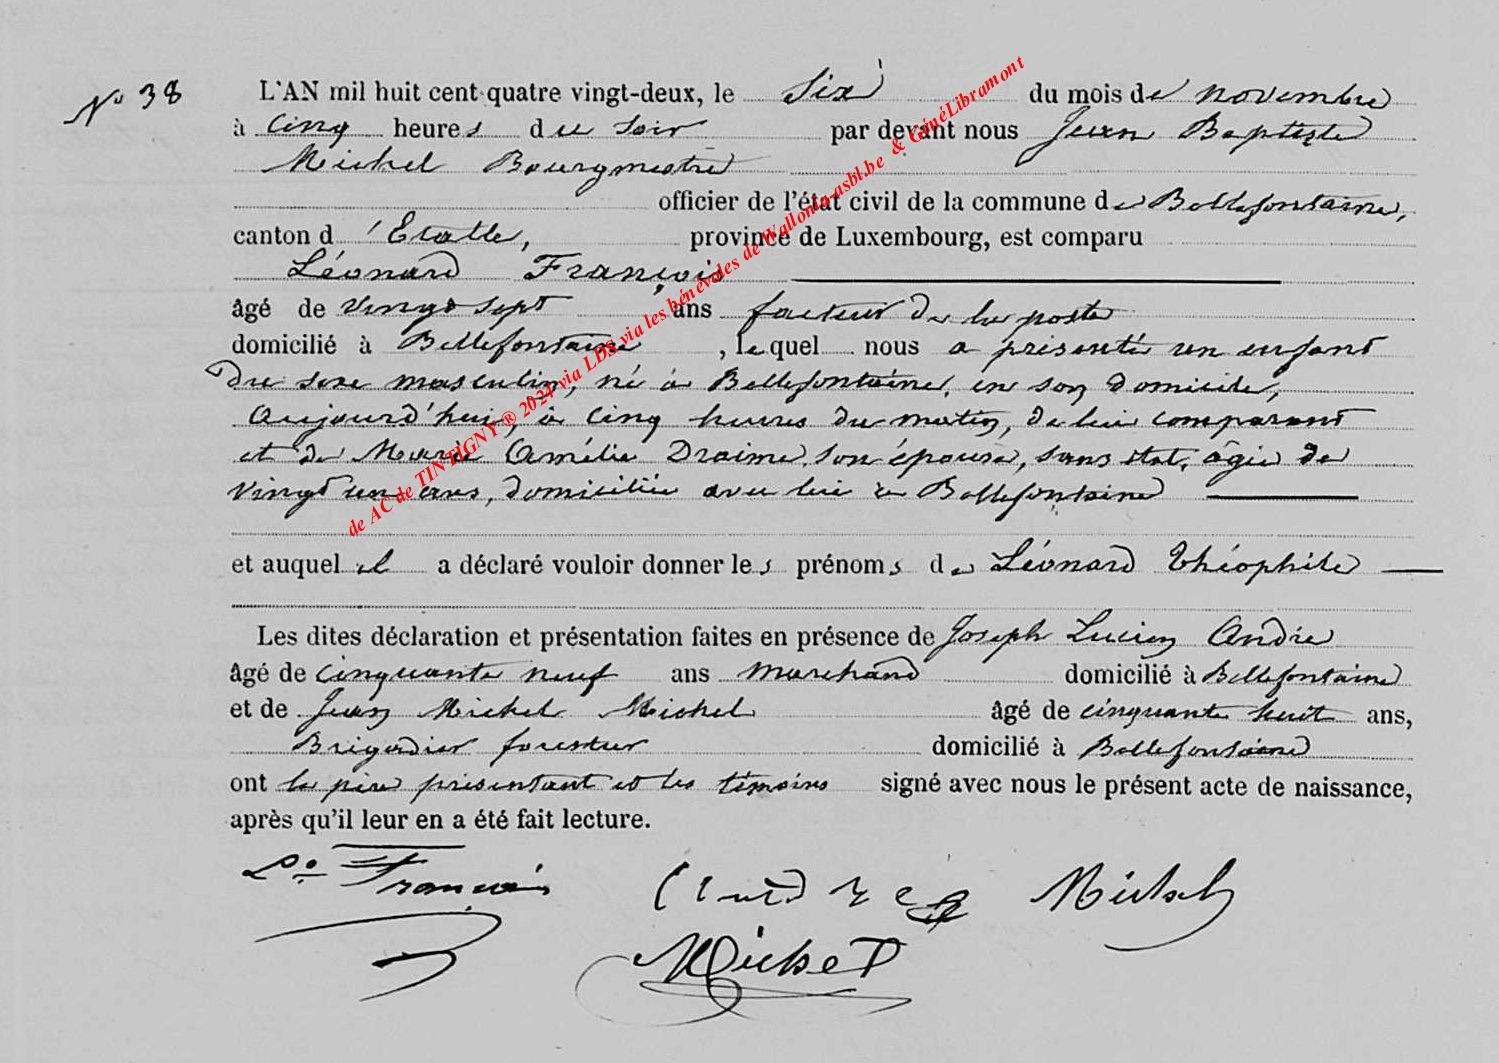 N° 38
L'AN mil huit cent quatre vingt-deux, le Six du mois de novembre
à Cinq heures du soir par devant nous Jean Baptiste
Michel Bourgmestre
officier de l'état civil de la commune de Bellefontaine,
canton d'Etalle, province de Luxembourg, est comparu
Léonard François
âgé de vingt sept ans facteur de la poste
domicilié à Bellefontaine, lequel nous a présenté un enfant
du sexe masculin, né à Bellefontaine, en son domicile,
aujourd'hui, à cinq heures du matin, de lui comparant
et de Marie Amélie Draime, son épouse, sans état, âgée de
vingt un ans, domiciliée avec lui à Bellefontaine
et auquel il a déclaré vouloir donner les prénoms de Léonard Théophile
Les dites déclaration et présentation faites en présence de Joseph Lucien André
âgé de cinquante neuf ans marchand domicilié à Bellefontaine
et de Jean Michel Michel âgé de cinquante huit ans,
Brigadier forestier domicilié à Bellefontaine
ont le père présentant et les témoins signé avec nous le présent acte de naissance,
après qu'il leur en a été fait lecture.
Ld François Michel
Michel
de AC de TINTIGNY ® 2024 via LDS via les bénévoles de Wallonia-asbl.be & GénéLibramont